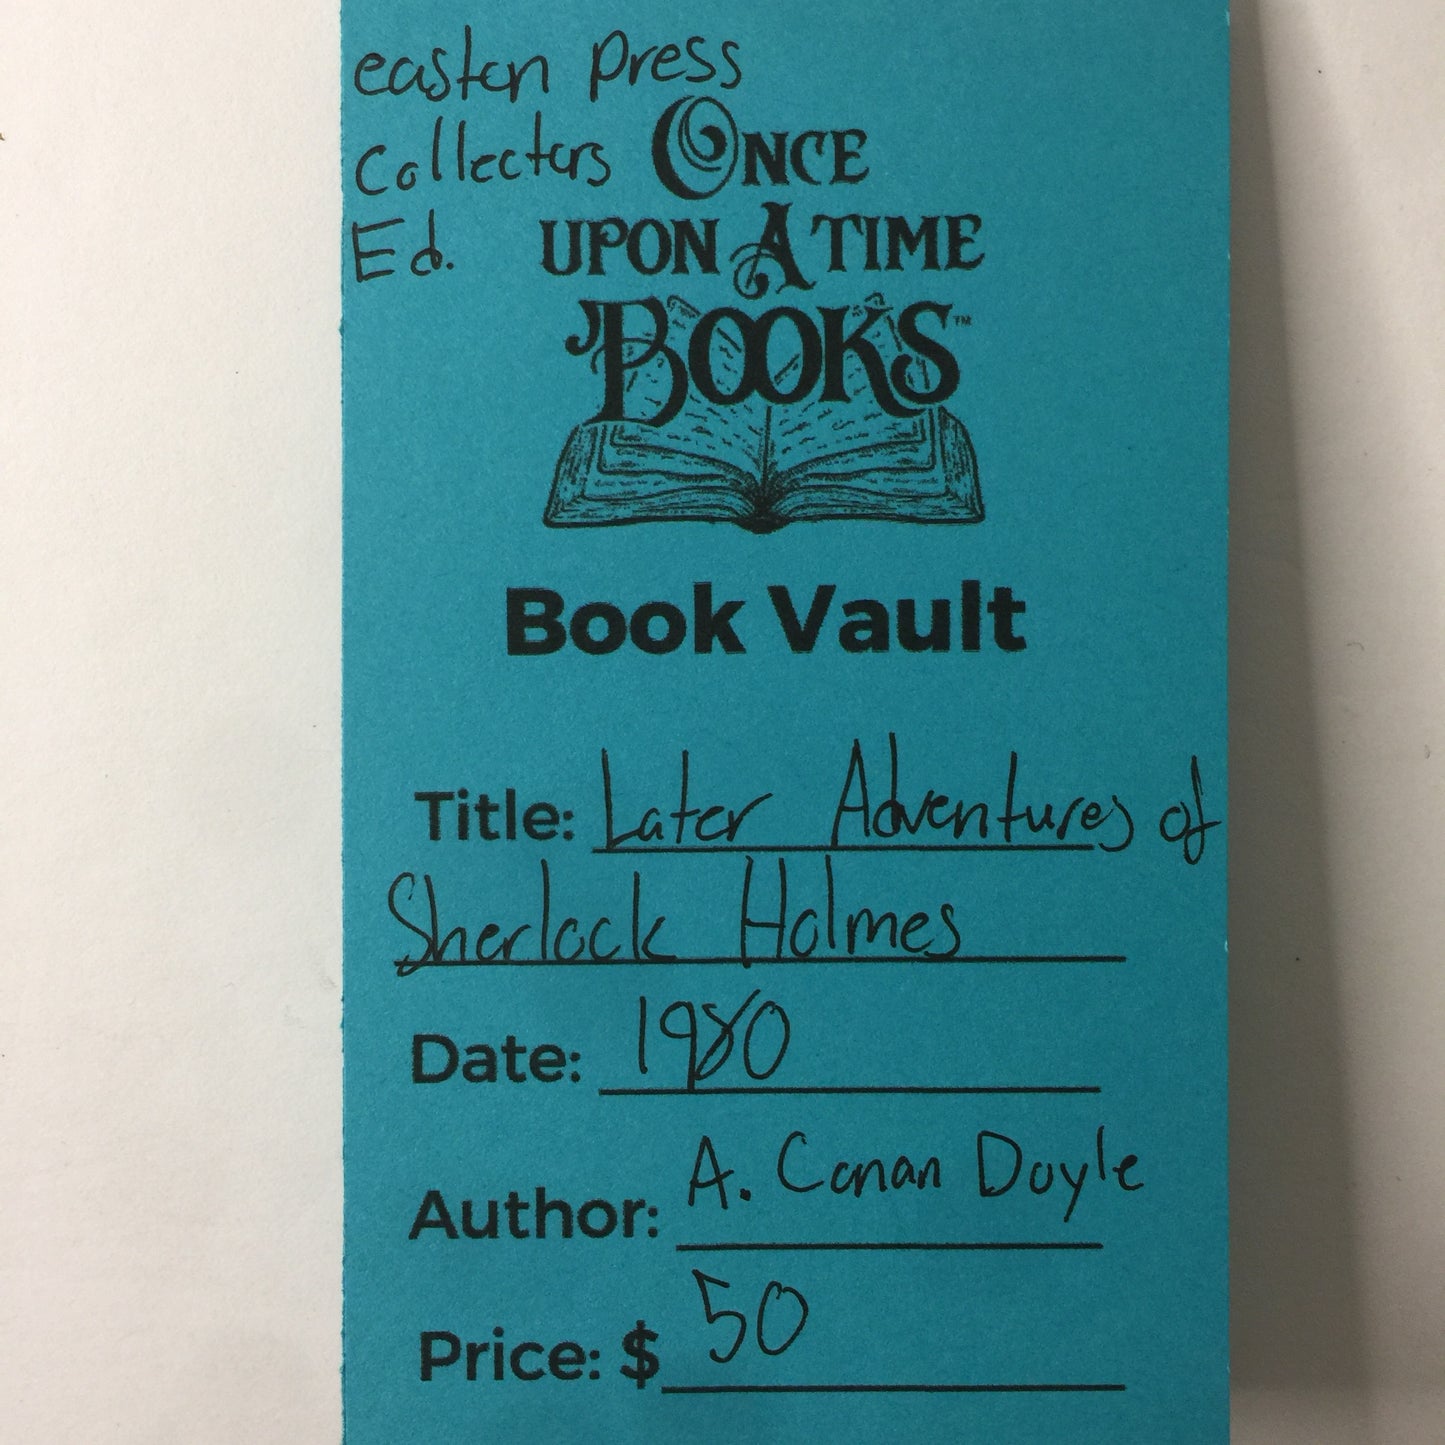 easton press
Collectors
Ed.
ONCE
UPON A TIME
BOOKS™
Book Vault
Title: Later Adventures of
Sherlock Holmes
Date: 1980
Author: A. Conan Doyle
Price: $50